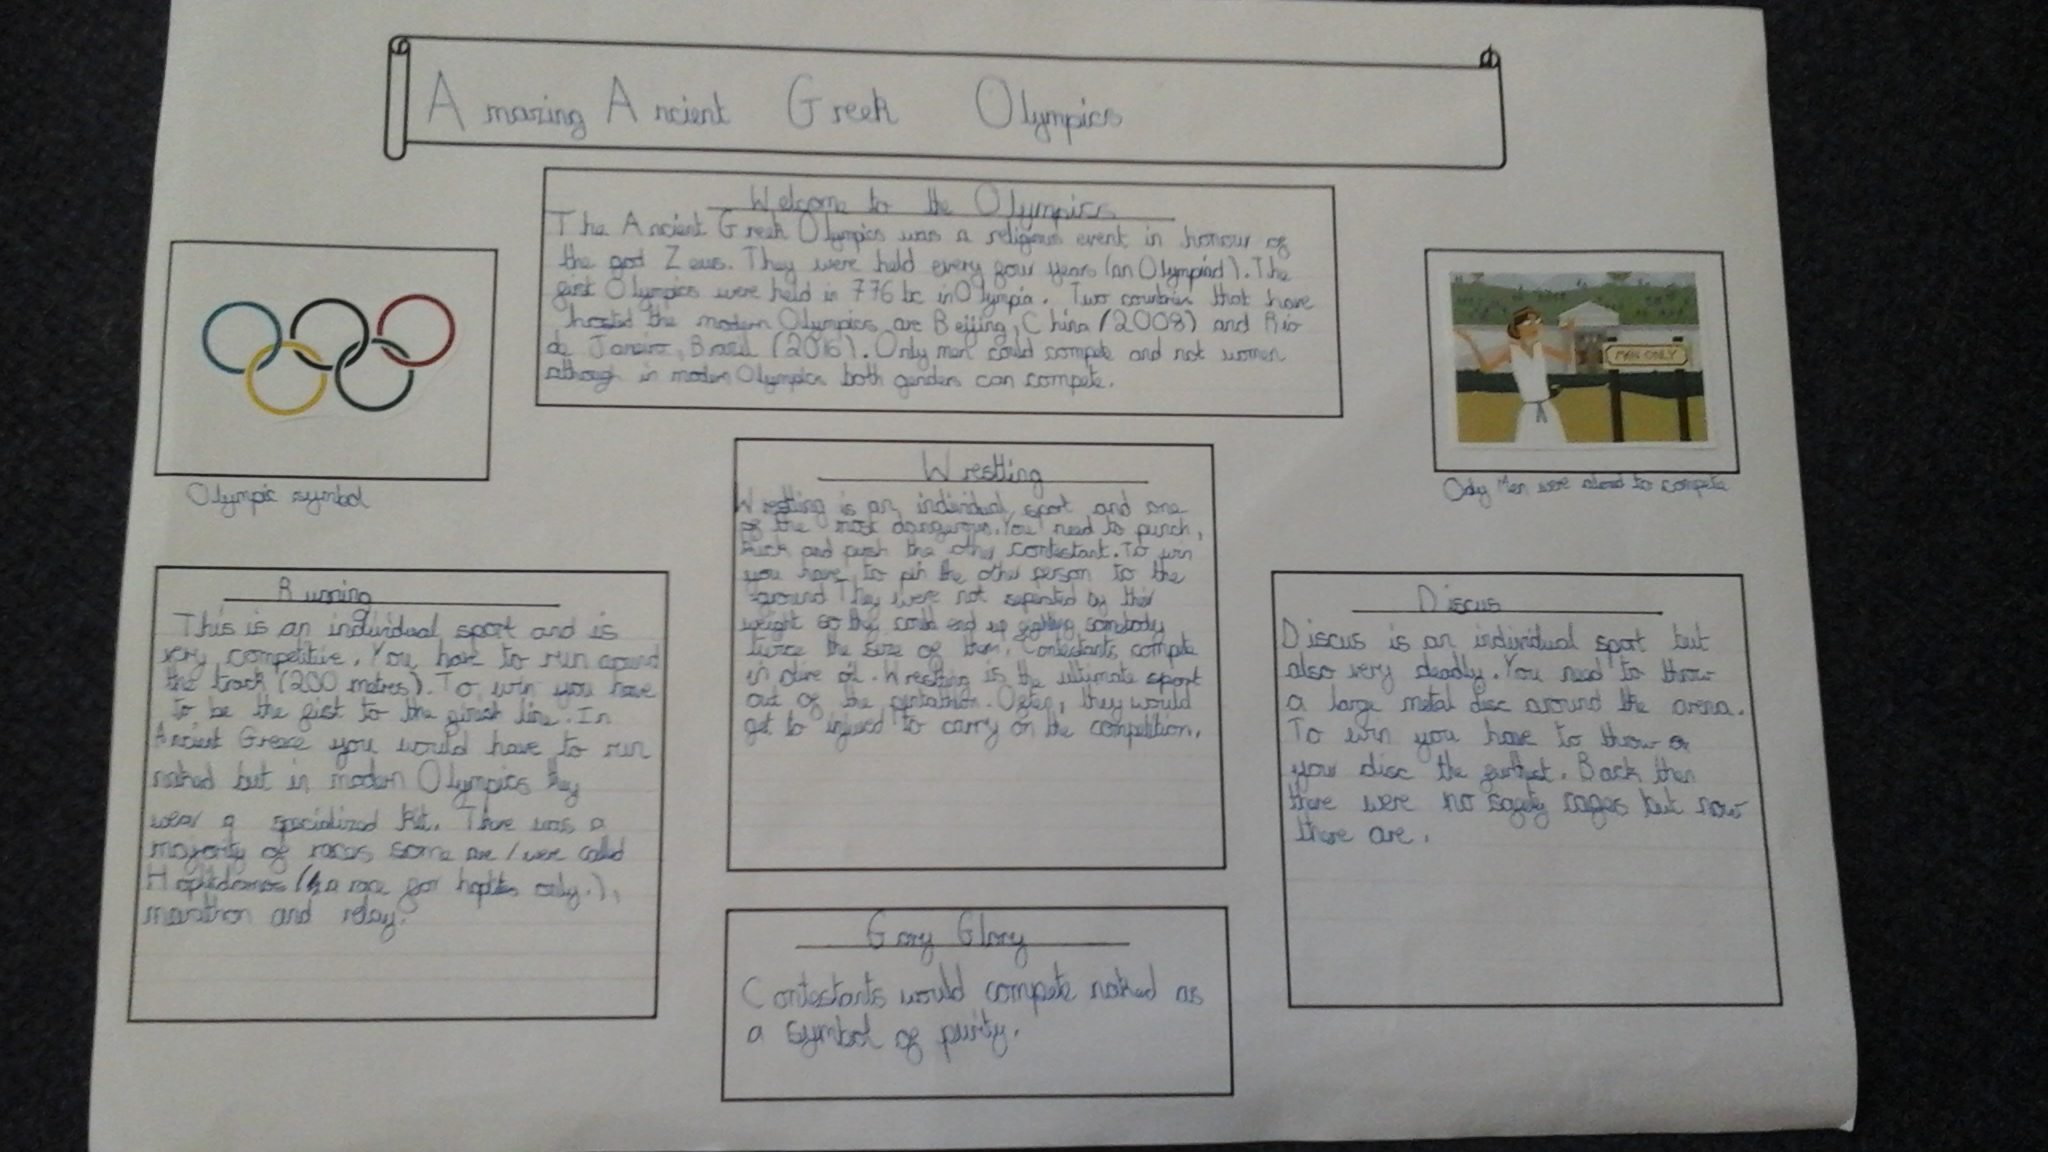 Amazing Ancient Greek Olympics
Welcome to the Olympics
The Ancient Greek Olympics was a religious event in honour of
the god Zeus. They were held every four years (an Olympiad). The
first Olympics were held in 776 bc in Olympia. Two countries that have
hosted the modern Olympics are Beijing, China (2008) and Rio
de Janeiro, Brazil (2016). Only men could compete and not women
although in modern Olympics both genders can compete.
Olympic symbol
MEN ONLY
Only Men were aloud to compete
Wrestling
Wrestling is an individual sport and one
of the most dangerous. You need to punch,
kick and push the other contestant. To win
you have to pin the other person to the
ground They were not seperated by their
weight so they could end up fighting somebody
twice the size of them. Contestants compete
in olive oil. Wrestling is the ultimate sport
out of the pentathlon. Often, they would
get to injured to carry on the competition.
Running
This is an individual sport and is
very competitive. You have to run around
the track (200 metres). To win you have
to be the first to the finish line. In
Ancient Greece you would have to run
naked but in modern Olympics they
wear a specialized kit. There was a
majority of races some are/were called
(a race for hoplites only.),
marathon and relay.
Discus
Discus is an individual sport but
also very deadly. You need to throw
a large metal disc around the arena.
To win you have to throw
your disc the furthest. Back then
there were no safety cages but now
there are.
Gory Glory
Contestants would compete naked as
a symbol of purity.